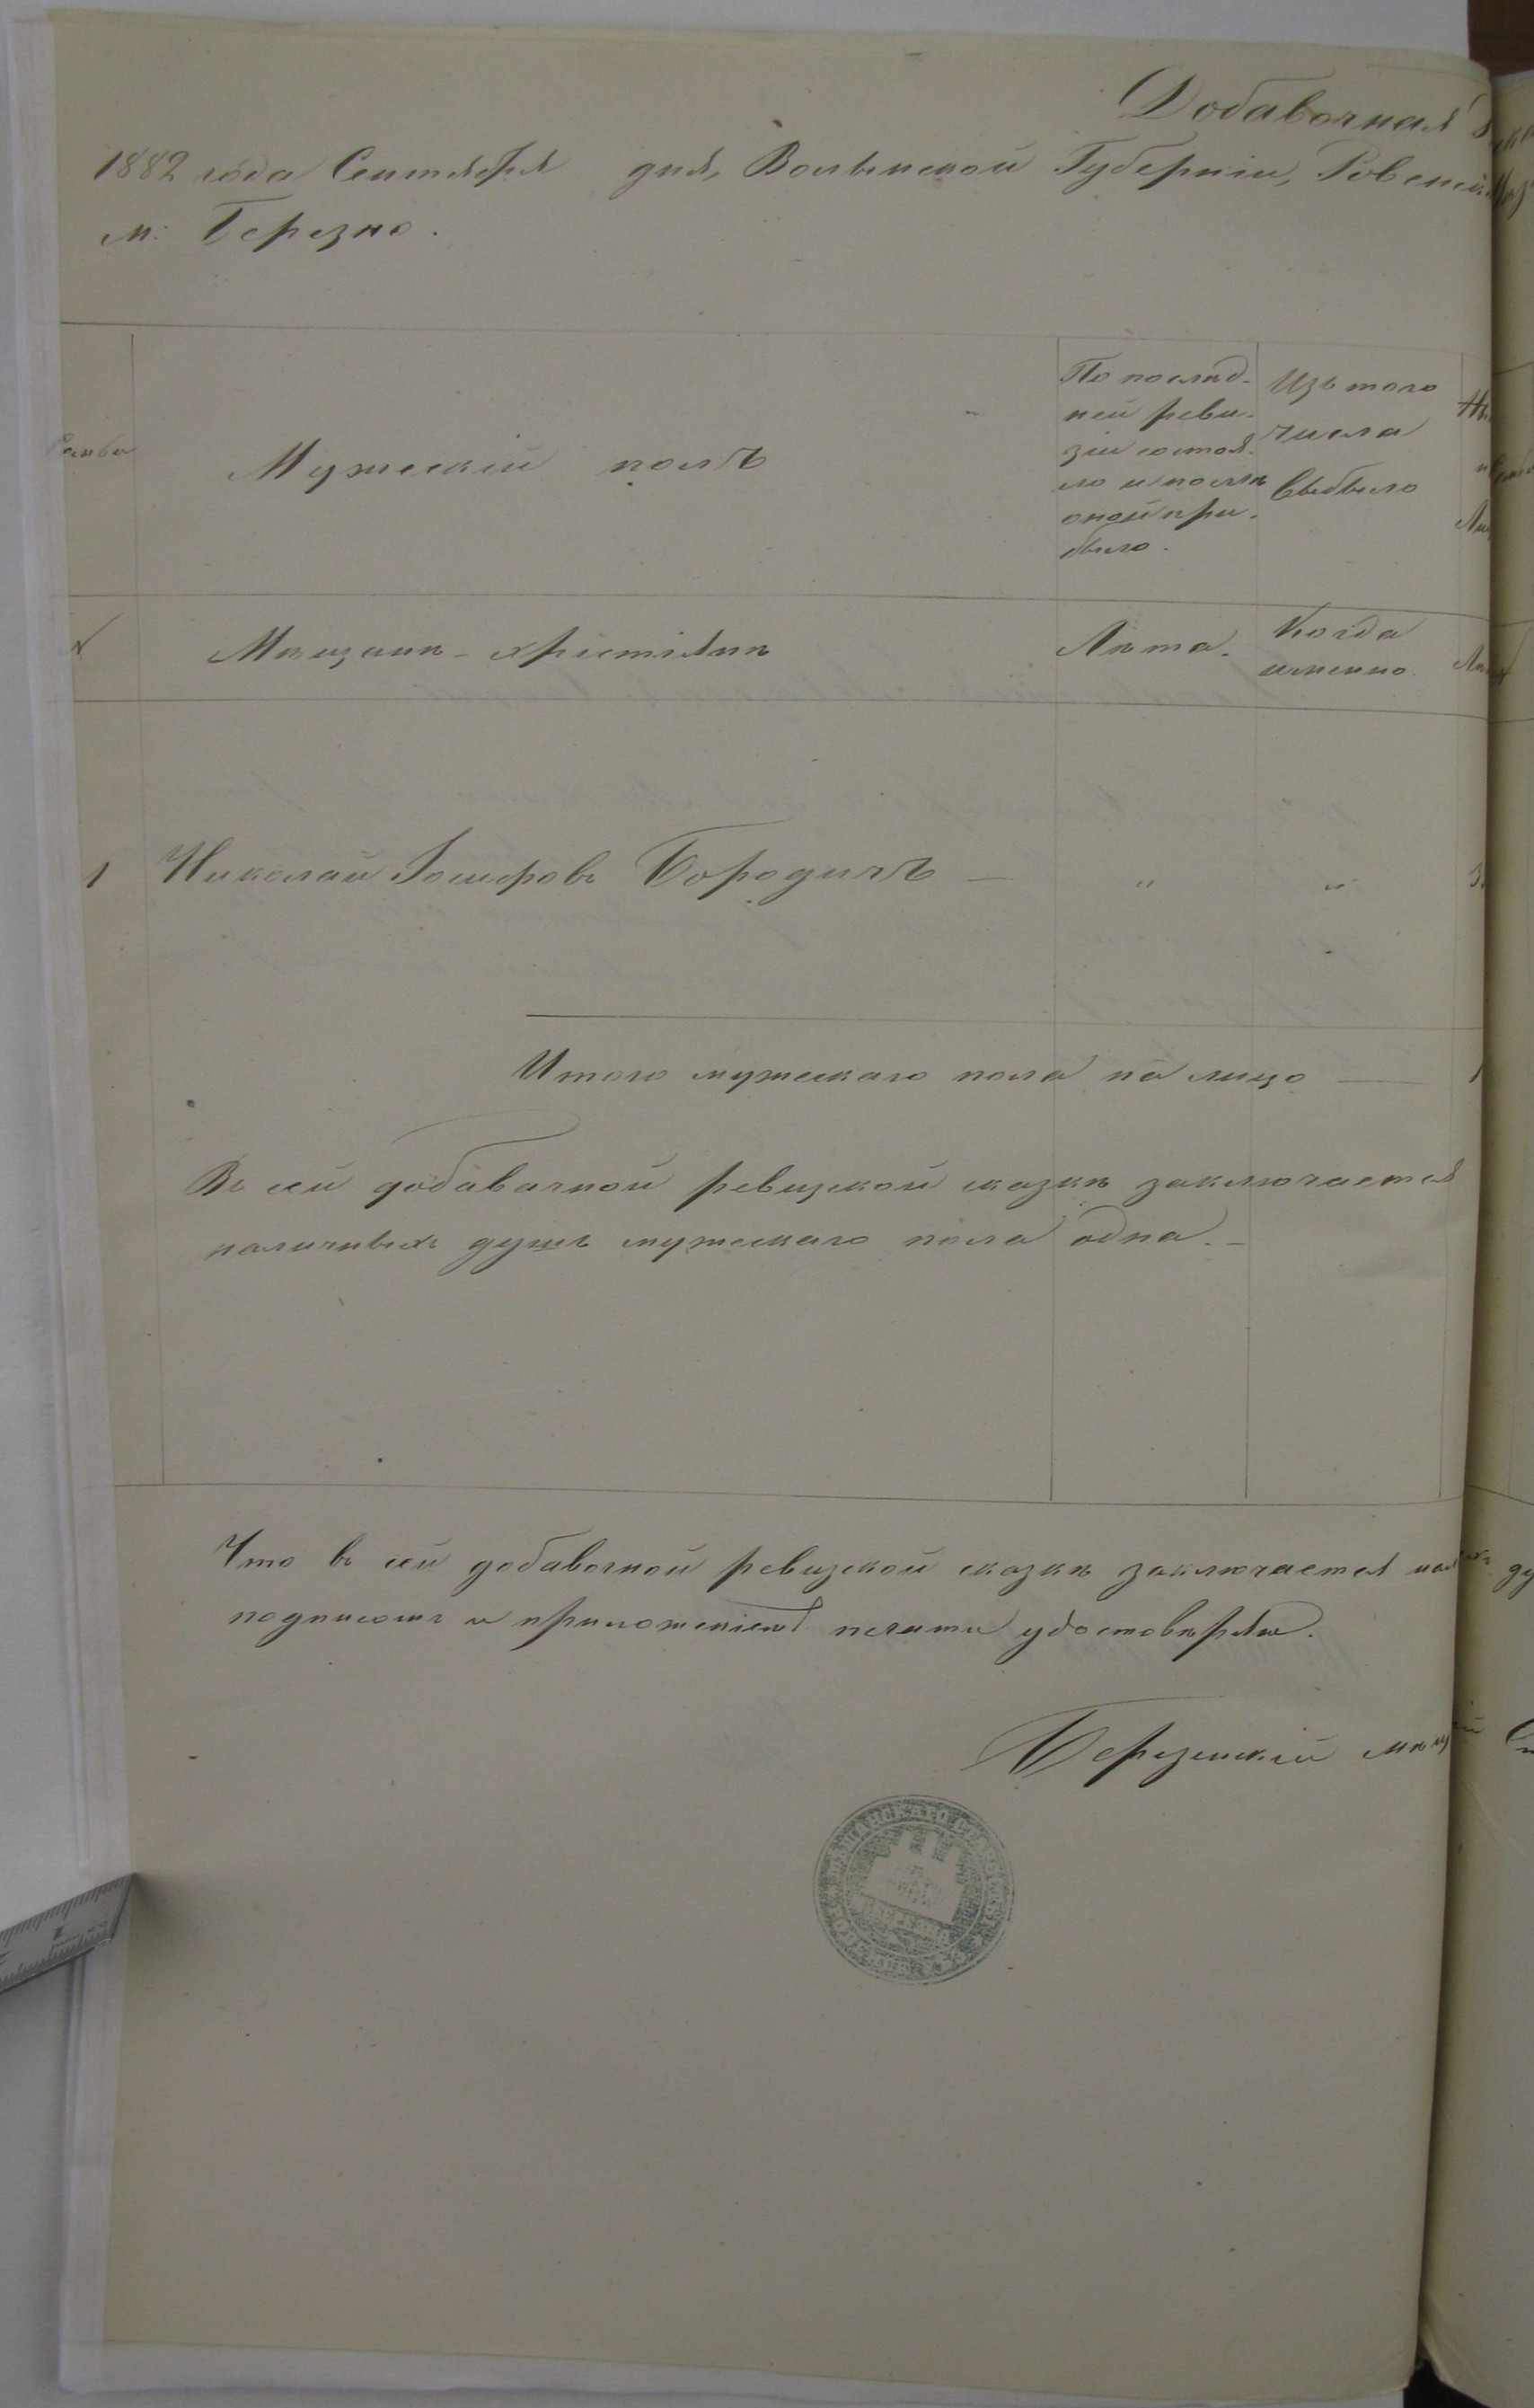 Добавочная
1882 года Сентября дня, Волынской Губерніи, Ровенск
м: Березно.
Семьи
Мужескій полъ
По послѣд-
ней реви-
зіи состоя-
ло и послѣ
оной при-
было.
Изъ того
числа
выбыло
№
Мѣщане - христіяне
Лѣта.
Когда
именно.
1 Николай Іосифовъ Бородичъ — " "
Итого мужескаго пола на лицо — 1
Въ сей добавочной ревизской сказкѣ заключается
наличныхъ душъ мужескаго пола одна. —
Что въ сей добавочной ревизской сказкѣ заключается
подписомъ и приложеніемъ печати удостовѣряю.
Березскій мѣщ